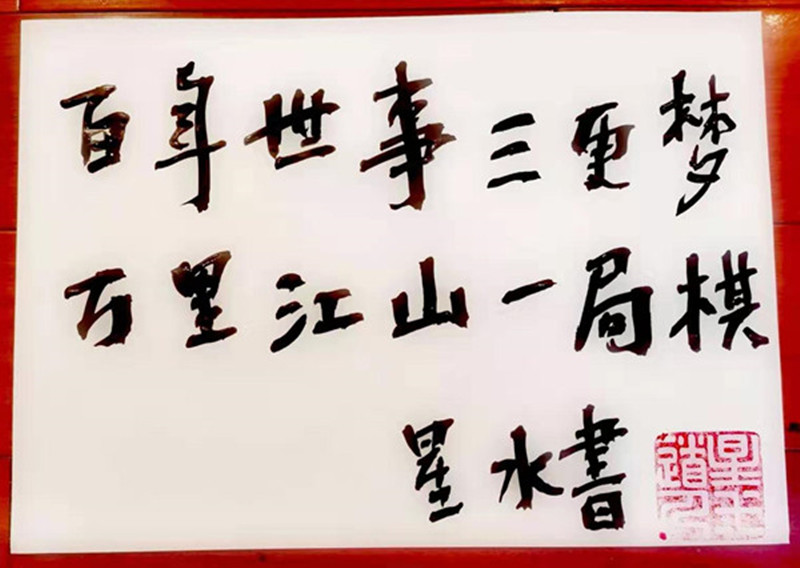 百年世事三更梦
万里江山一局棋
星水書